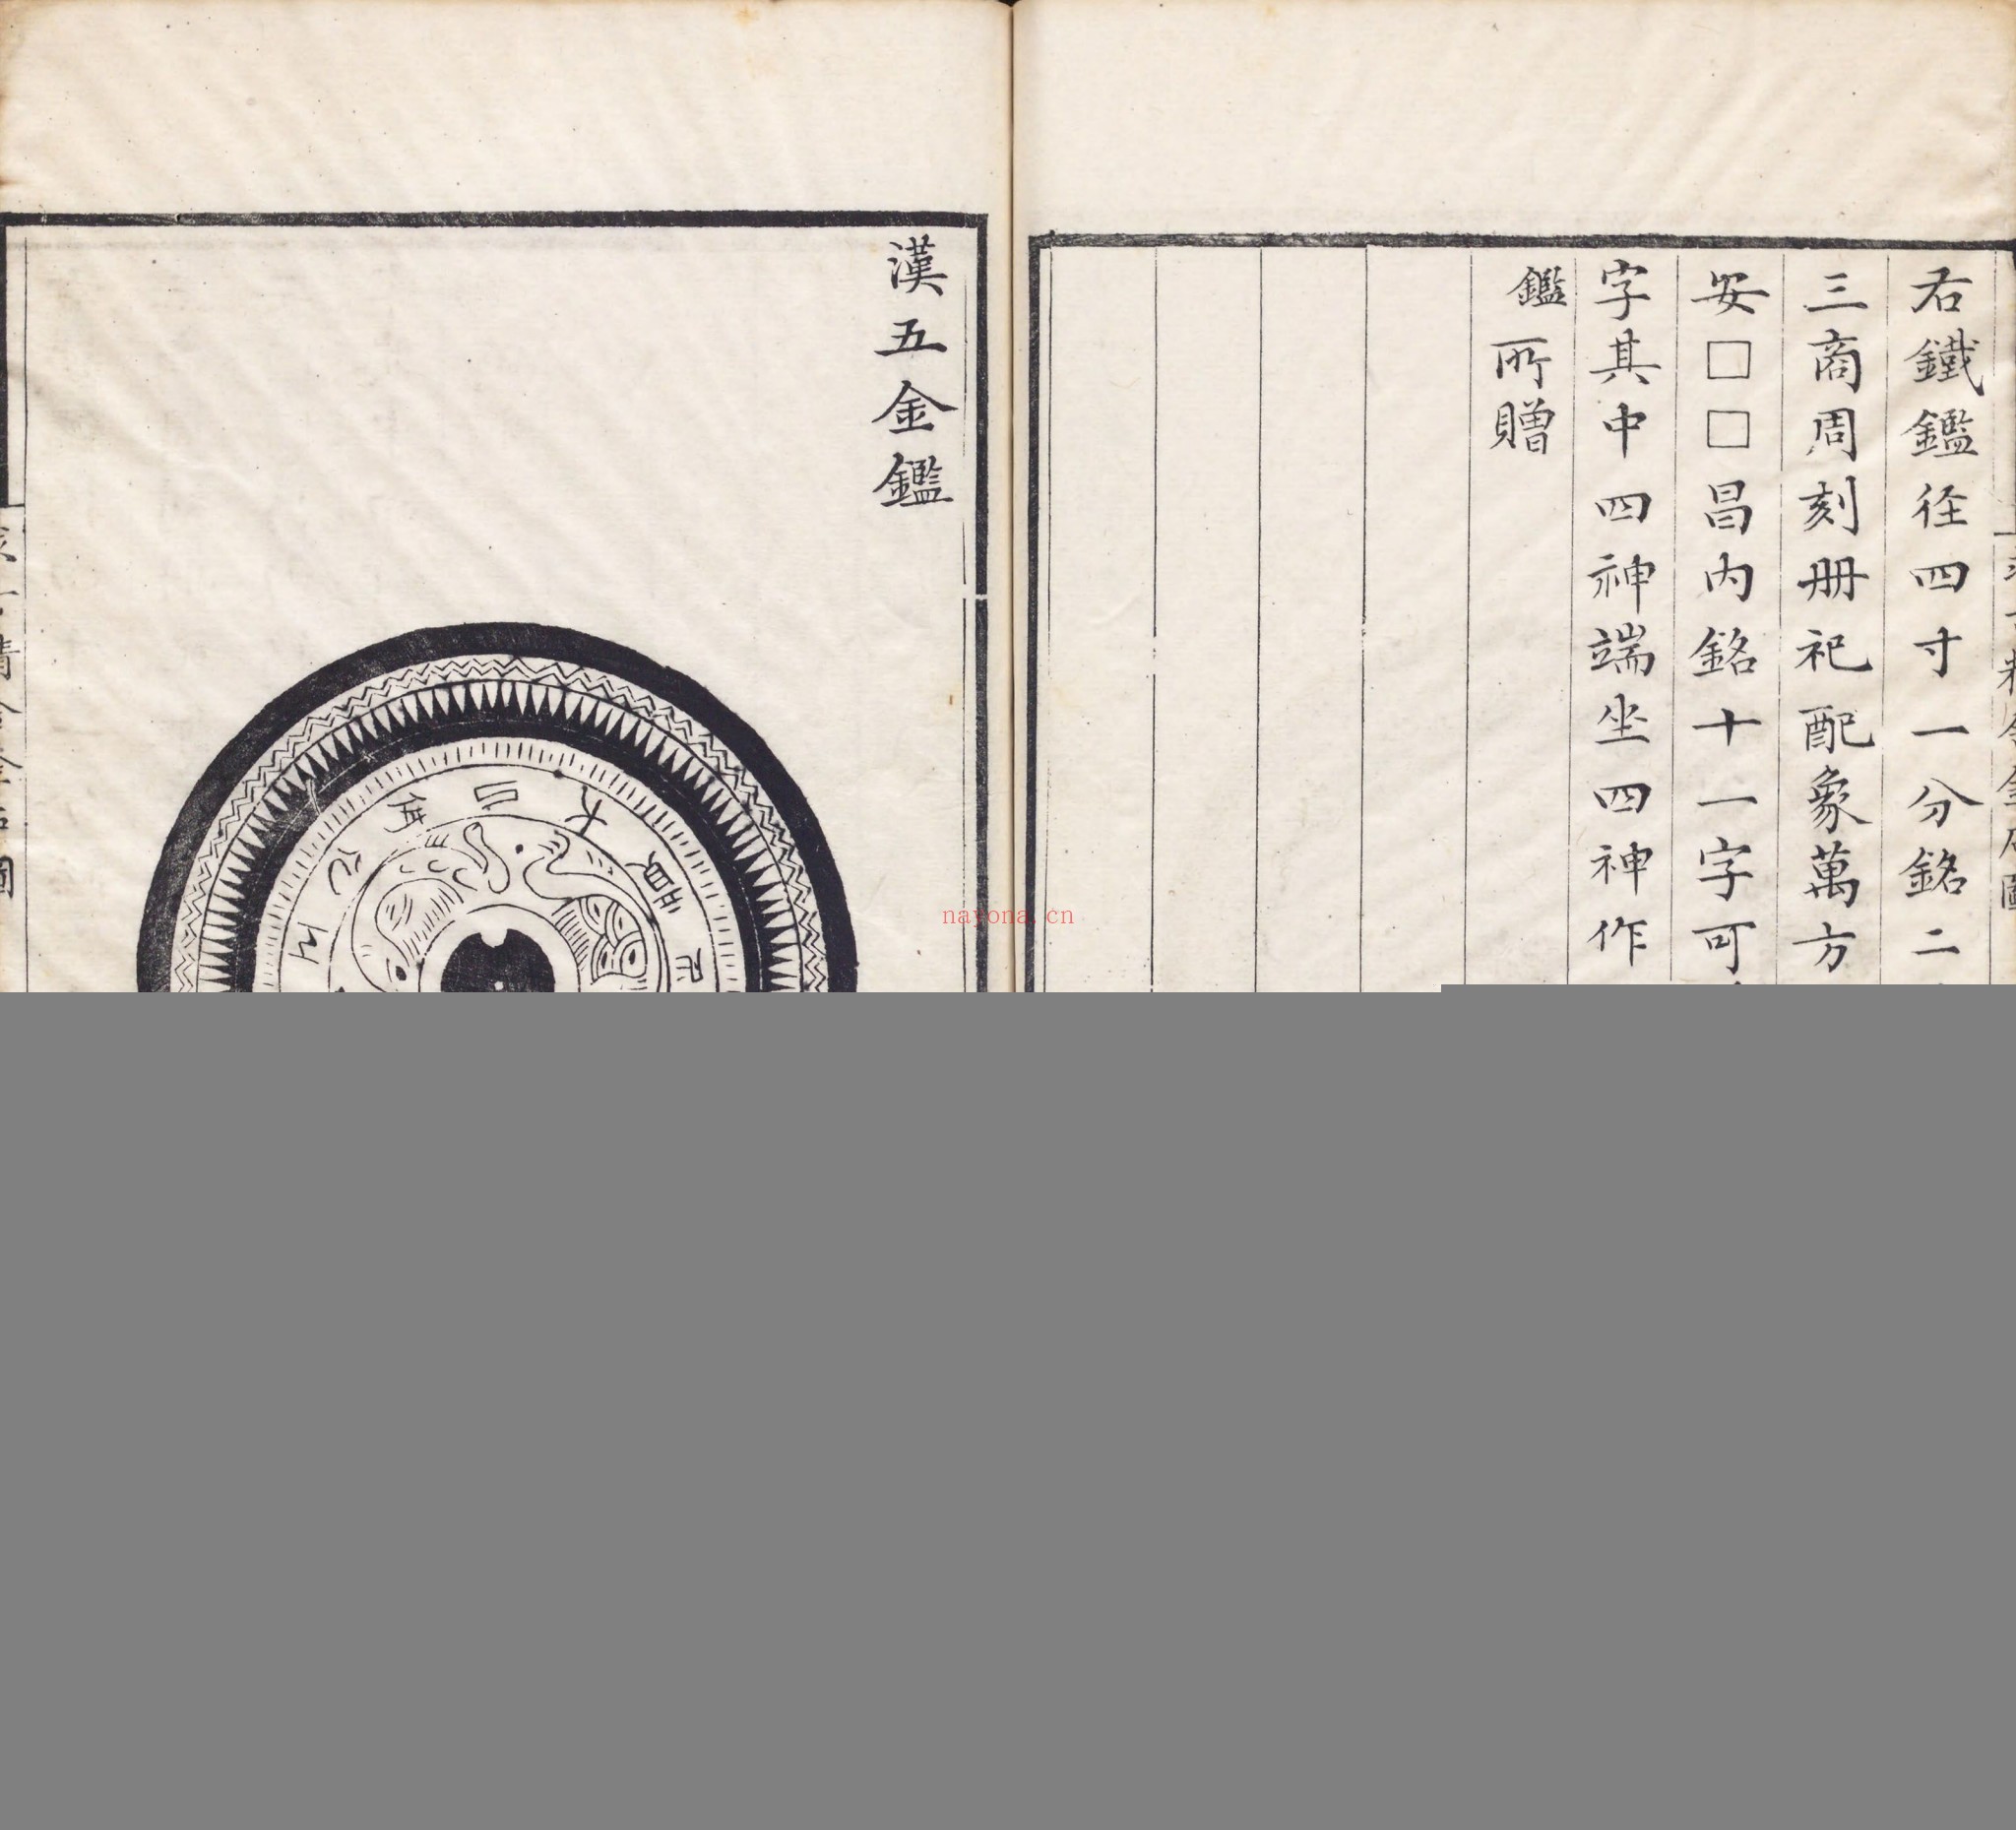 右鐵鑑径四寸一分銘二
三商周刻冊祀配象萬方
安□□昌內銘十一字可
字其中四神端坐四神作
鑑所贈
漢五金鑑
nayona.cn